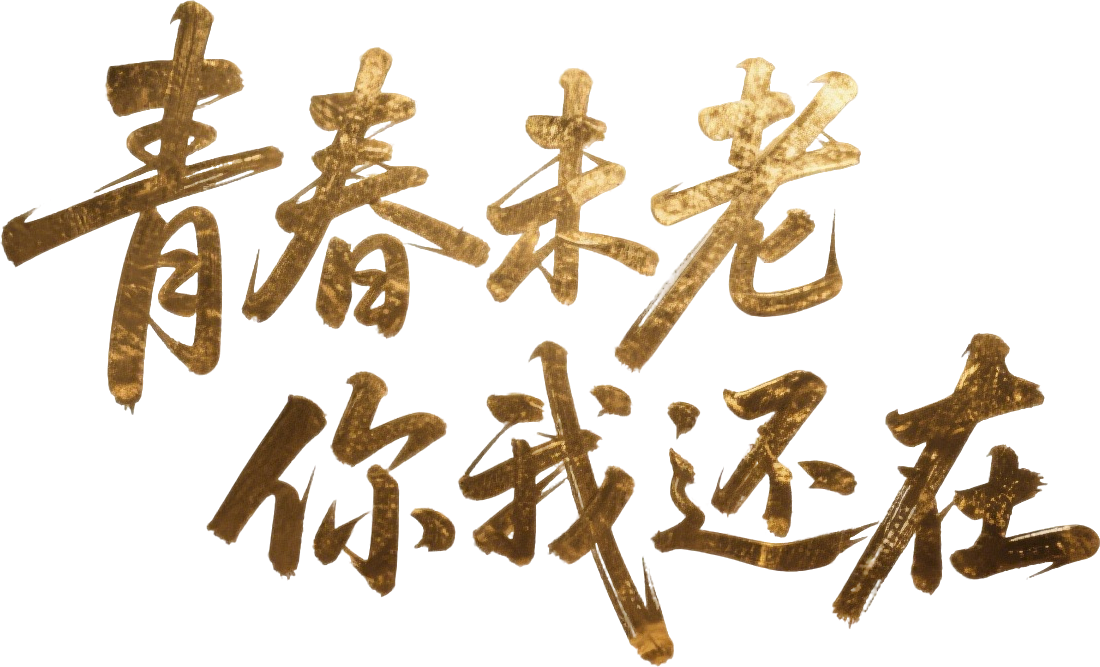 青春未老
你我还在